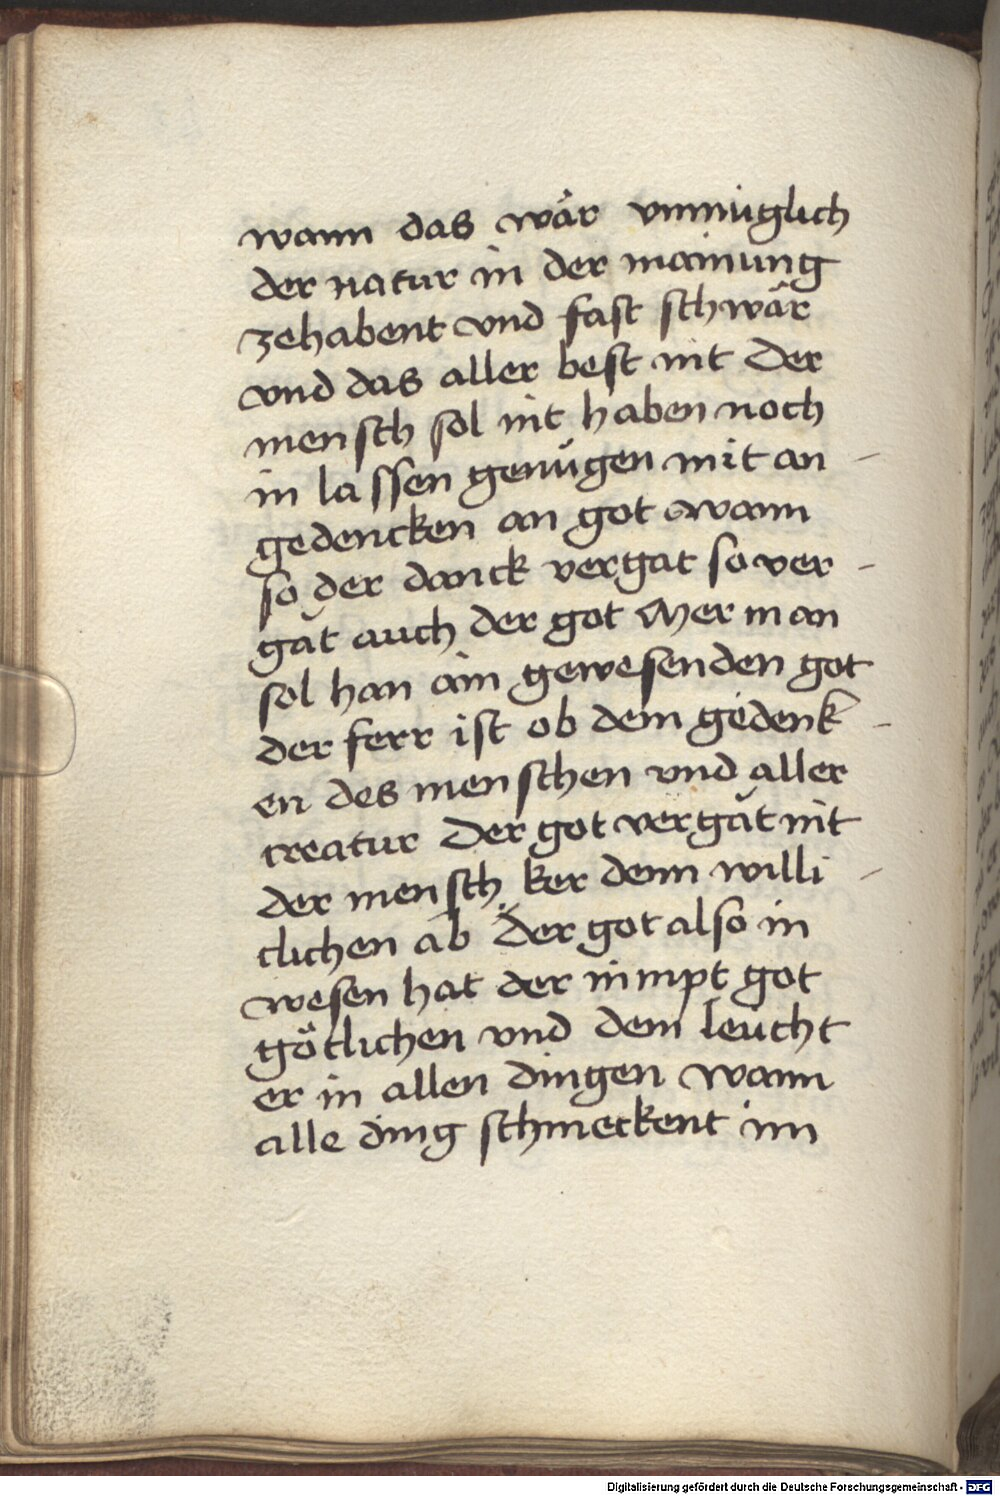 wann das wär vnmüglich
der natur in der mainung
zehabent vnd fast schwär
vnd das aller best nit Der
mensch sol nit haben noch
in lassen genügen mit an –
gedencken an got wann
so der danck vergat so ver –
gät auch der got Mer man
sol han ain gewesenden got
der ferr ist ob dem gedenk –
en des menschen vnd aller
creatur Der got vergät nit
der mensch ker denn willi –
clichen ab Der got also in
wesen hat der nimpt got
götlichen vnd dem leücht
er in allen dingen wann
alle ding schmeckent im
Digitalisierung gefördert durch die Deutsche Forschungsgemeinschaft - DFG